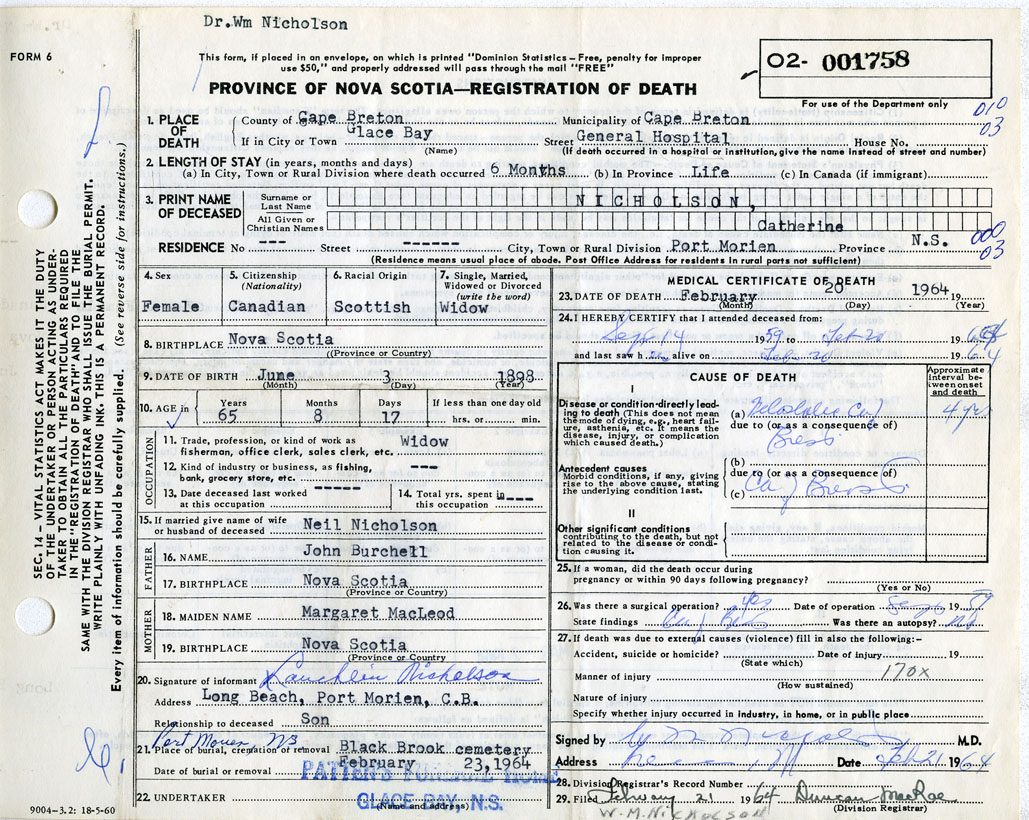 Dr.Wm Nicholson
FORM 6
This form, if placed in an envelope, on which is printed "Dominion Statistics – Free, penalty for improper
use $50," and properly addressed will pass through the mail "FREE"
PROVINCE OF NOVA SCOTIA—REGISTRATION OF DEATH
O2- 001758
For use of the Department only
010
03
SEC. 14 – VITAL STATISTICS ACT MAKES IT THE DUTY
OF THE UNDERTAKER OR PERSON ACTING AS UNDER-
TAKER TO OBTAIN ALL THE PARTICULARS REQUIRED
IN THE "REGISTRATION OF DEATH" AND TO FILE THE
SAME WITH THE DIVISION REGISTRAR WHO SHALL ISSUE THE BURIAL PERMIT.
WRITE PLAINLY WITH UNFADING INK. THIS IS A PERMANENT RECORD.
Every item of information should be carefully supplied. (See reverse side for instructions.)
1. PLACE OF DEATH
County of Cape Breton Municipality of Cape Breton
If in City or Town Glace Bay Street General Hospital House No.
(Name) (If death occurred in a hospital or institution, give the name instead of street and number)
2. LENGTH OF STAY (in years, months and days)
(a) In City, Town or Rural Division where death occurred 6 Months (b) In Province Life (c) In Canada (if immigrant)
3. PRINT NAME OF DECEASED
Surname or Last Name NICHOLSON,
All Given or Christian Names Catherine
RESIDENCE No --- Street ------ City, Town or Rural Division Port Morien Province N.S.
000
03
(Residence means usual place of abode. Post Office Address for residents in rural parts not sufficient)
4. Sex
Female
5. Citizenship
(Nationality)
Canadian
6. Racial Origin
Scottish
7. Single, Married,
Widowed or Divorced
(write the word)
Widow
8. BIRTHPLACE Nova Scotia
(Province or Country)
9. DATE OF BIRTH June 3 1898
(Month) (Day) (Year)
10. AGE in
Years 65
Months 8
Days 17
If less than one day old
hrs. or min.
OCCUPATION
11. Trade, profession, or kind of work as
fisherman, office clerk, sales clerk, etc. Widow
12. Kind of industry or business, as fishing,
bank, grocery store, etc. ---
13. Date deceased last worked
at this occupation ------
14. Total yrs. spent in
this occupation ----
15. If married give name of wife
or husband of deceased Neil Nicholson
FATHER
16. NAME John Burchell
17. BIRTHPLACE Nova Scotia
(Province or Country)
MOTHER
18. MAIDEN NAME Margaret MacLeod
19. BIRTHPLACE Nova Scotia
(Province or Country
20. Signature of informant Lauchlein Nicholson
Address Long Beach, Port Morien, C.B.
Relationship to deceased Son
Port Morien NS
21. Place of burial, cremation or removal Black Brook cemetery
Date of burial or removal February 23,1964
22. UNDERTAKER
PATTEN'S FUNERAL HOME
GLACE BAY, N.S.
(Name and address)
9004–3.2: 18-5-60
MEDICAL CERTIFICATE OF DEATH
23. DATE OF DEATH February 20 1964 19
(Month) (Day) (Year)
24. I HEREBY CERTIFY that I attended deceased from:
Sept 14 1959 to Feb 20 1964
and last saw her alive on Feb 20 1964
CAUSE OF DEATH
Approximate
interval be-
tween onset
and death
I
Disease or condition directly lead-
ing to death (This does not mean
the mode of dying, e.g., heart fail-
ure, asthenia, etc. It means the
disease, injury, or complication
which caused death.)
(a) Ca of 4 yrs
due to (or as a consequence of)
Breast
Antecedent causes
Morbid conditions, if any, giving
rise to the above cause, stating
the underlying condition last.
(b)
due to (or as a consequence of)
(c) Ca of Breast
II
Other significant conditions
contributing to the death, but not
related to the disease or condi-
tion causing it.
25. If a woman, did the death occur during
pregnancy or within 90 days following pregnancy?
(Yes or No)
26. Was there a surgical operation? yes Date of operation Sept 1959
State findings Ca of Breast Was there an autopsy? No
27. If death was due to external causes (violence) fill in also the following:–
Accident, suicide or homicide? Date of injury 19
(State which)
Manner of injury 170X
(How sustained)
Nature of injury
Specify whether injury occurred in industry, in home, or in public place
Signed by W M Nicholson M.D.
Address Date Feb 21 1964
28. Division Registrar's Record Number
29. Filed February 21 1964 Duncan MacRae
(Division Registrar)
W.M.Nicholson